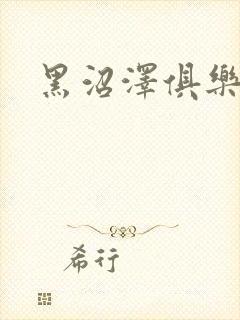 黑沼澤俱樂
希行